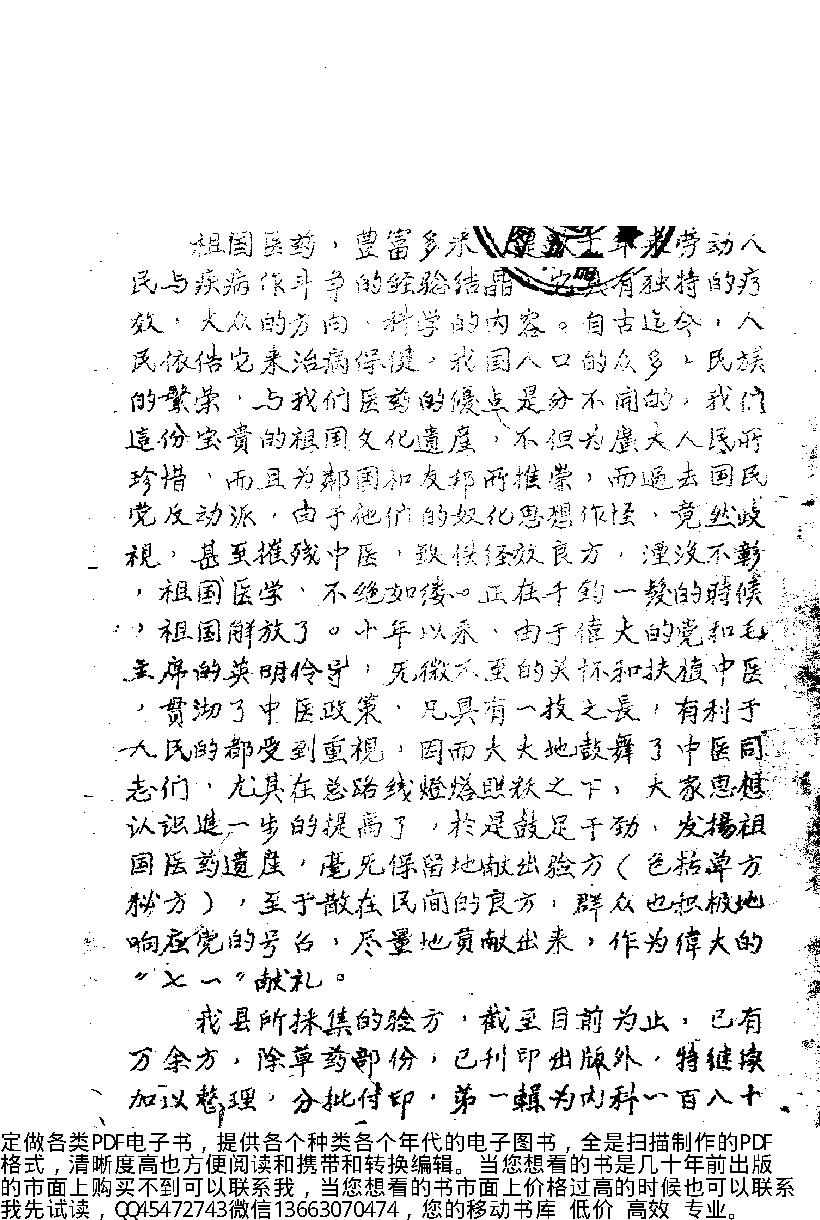 祖国医药，豊富多采，是数千年来劳动人
民与疾病作斗争的经验结晶，它具有独特的疗
效，大众的方向，科学的内容。自古迄今，人
民依估它来治病保健，我国人口的众多，民族
的繁荣，与我们医药的優点是分不開的，我们
這份宝貴的祖国文化遺産，不但为廣大人民所
珍惜，而且为鄰国和友邦所推崇，而過去国民
党反动派，由于他们的奴化思想作怪，竟然歧
視，甚至摧残中医，致使经效良方，湮没不彰
，祖国医学，不绝如缕。正在千鈞一髮的時候
，祖国解放了。十年以来，由于偉大的党和毛
主席的英明领导，无微不至的关怀和扶植中医
，贯沏了中医政策，凡具有一技之長，有利于
人民的都受到重視，因而大大地鼓舞了中医同
志们，尤其在总路线燈塔照耀之下，大家思想
认识進一步的提高了，於是鼓足干劲，发揚祖
国医药遗产，毫无保留地献出验方（包括单方
秘方），至于散在民间的良方，群众也积极地
响应党的号召，尽量地貢献出来，作为偉大的
“七一”献礼。
我县所採集的验方，截至目前为止，已有
万余方，除草药部份，已刊印出版外，特继续
加以整理，分批付印，第一輯为内科一百八十
定做各类PDF电子书，提供各个种类各个年代的电子图书，全是扫描制作的PDF
格式，清晰度高也方便阅读和携带和转换编辑。当您想看的书是几十年前出版
的市面上购买不到可以联系我，当您想看的书市面上价格过高的时候也可以联系
我先试读，QQ45472743微信13663070474，您的移动书库 低价 高效 专业。